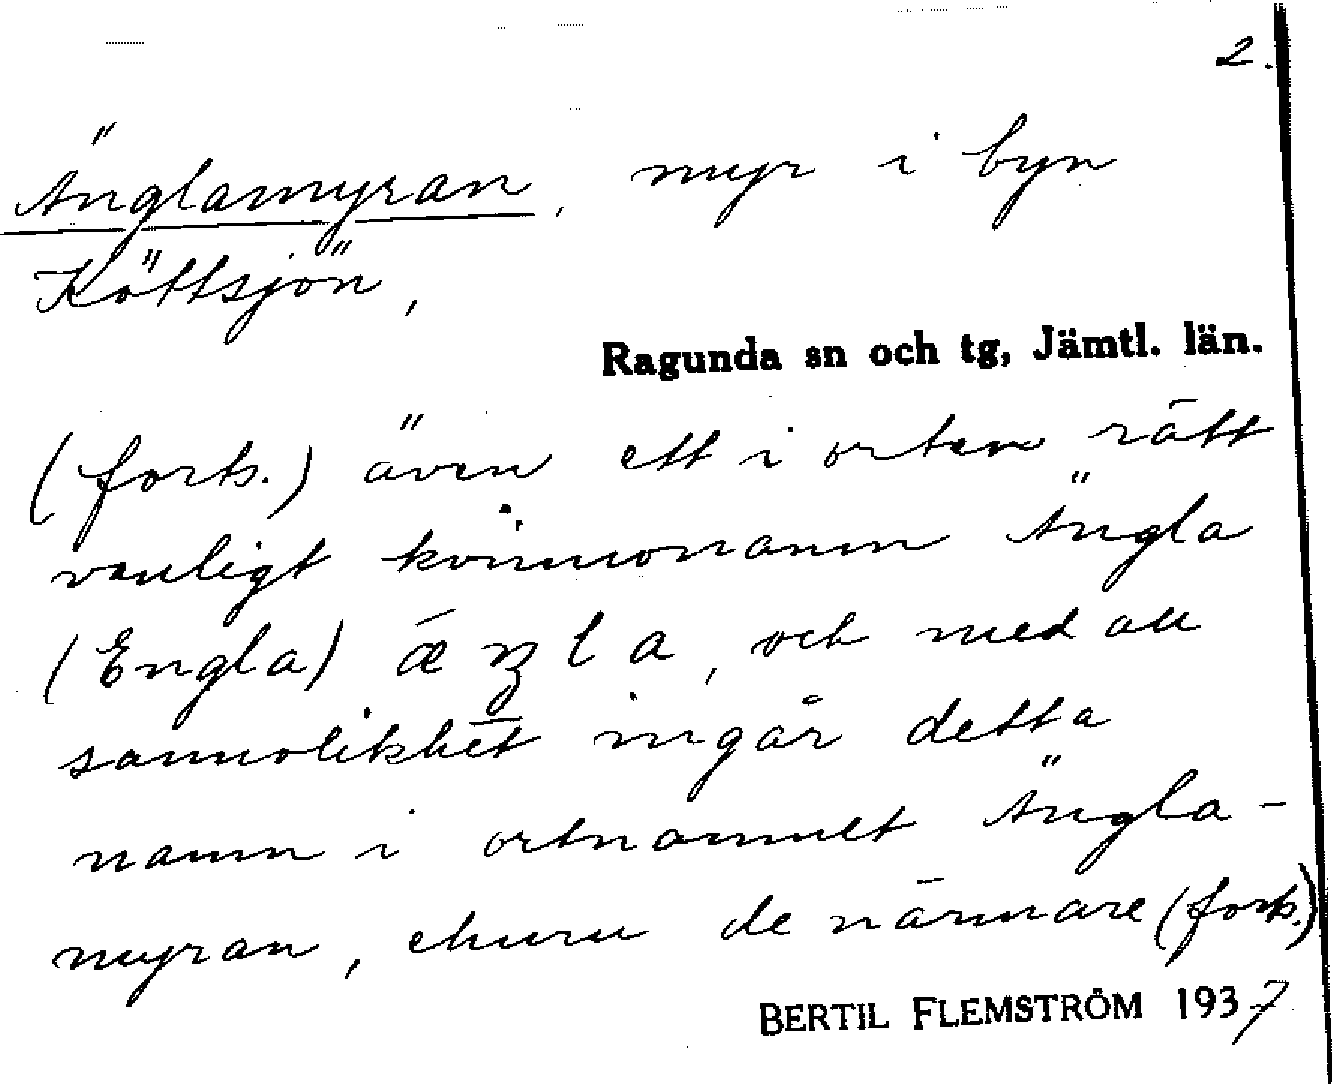 2.
Änglamyran, myr i byn
Köttsjön,
Ragunda sn och tg, Jämtl. län.
(forts.) även ett i orten rätt
vanligt kvinnonamn Ängla
(Engla) ǽŋla, och med all
sannolikhet ingår detta
namn i ortnamnet Ängla-
myran, ehuru de närmare (forts.)
BERTIL FLEMSTRÖM 1937